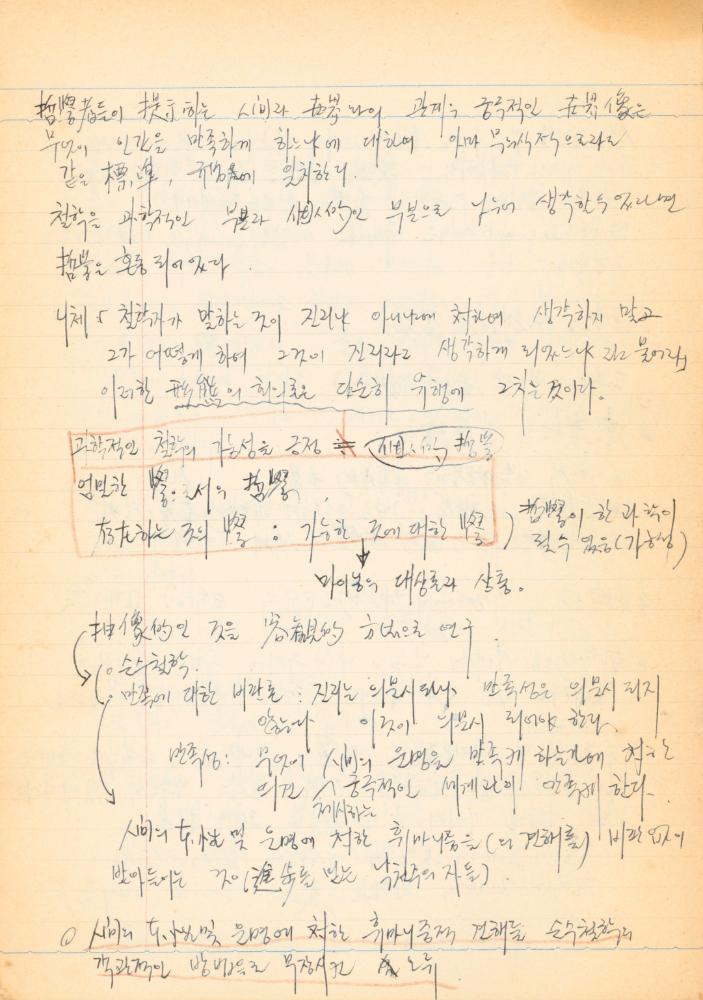 哲學者들이 提示하는 人間과 世界와의 관계의 궁극적인 世界像은
무엇이 인간을 만족하게 하느냐에 대하여 아마 무의식적으로라도
같은 標準, 에 일치한다.
철학을 과학적인 부분과 個人的인 부분으로 나누어 생각할 수 있다면
哲學은 혼동되어 있다.
니체 「철학자가 말하는 것이 진리냐 아니냐에 対하여 생각하지 말고
그가 어떻게 하여 그것이 진리라고 생각하게 되었느냐 라고 물어라」
이러한 形態의 회의론은 단순히 유행에 그치는 것이다.
과학적인 철학의 가능성을 긍정 ≠ 個人的 哲學
엄밀한 學으로서의 哲學,
存在하는 것의 學 : 가능한 것에 대한 學 ) 哲學이 한 과학이
될 수 있음 (가능성)
마이농의 대상론과 상통.
抽像的인 것을 客觀的 方法으로 연구.
순수철학.
만족에 대한 비판론 : 진리는 의문시되나, 만족성은 의문시 되지
않는다 이것이 의문시 되어야 한다.
만족성 : 무엇이 人間의 운명을 만족케 하는가에 対한
의견 궁극적인 세계관이 만족케 한다.
제시하는
人間의 本性 및 운명에 対한 휴마니즘을 (의 견해를) 비판없이
받아들이는 것이 (進步를 믿는 낙천주의자들)
○ 人間의 本性 및 운명에 対한 휴마니즘적 견해를 순수철학의
객관적인 방법으로 무장시킨 오류.